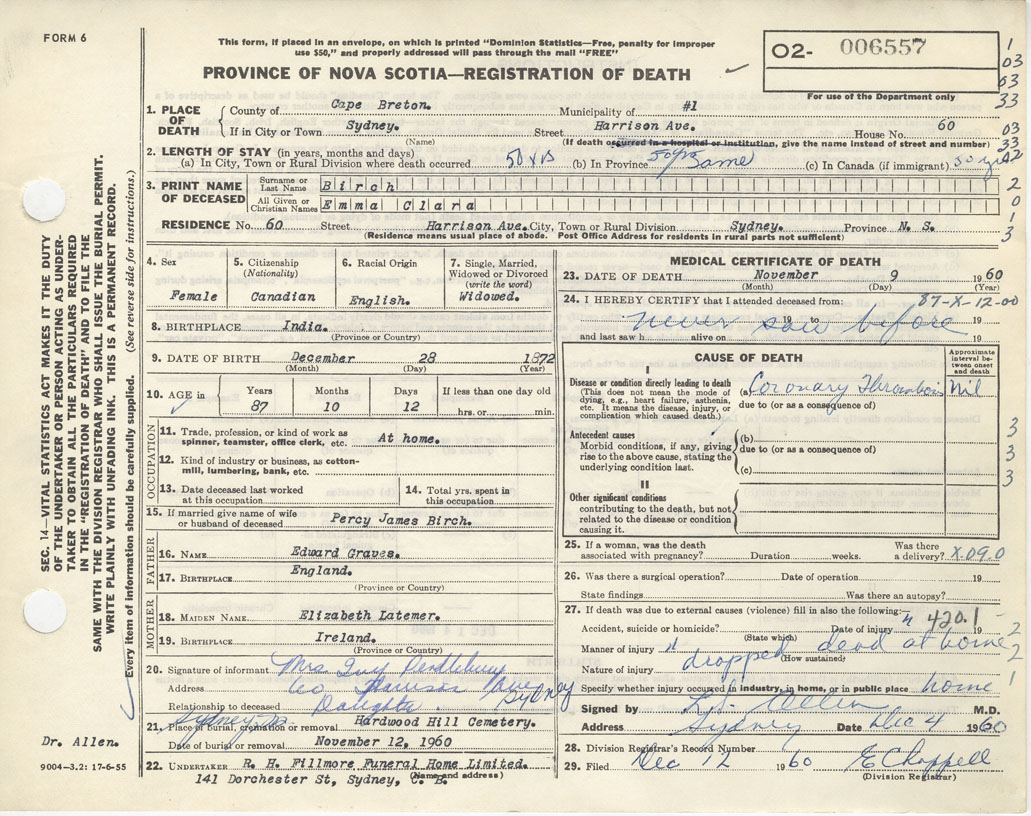 FORM 6
This form, if placed in an envelope, on which is printed "Dominion Statistics—Free, penalty for improper
use $50," and properly addressed will pass through the mail "FREE"
PROVINCE OF NOVA SCOTIA—REGISTRATION OF DEATH
02- 006557
For use of the Department only
1
03
03
33
03
33
02
2
0
1
3
1. PLACE OF DEATH County of Cape Breton. Municipality of #1
If in City or Town Sydney. Street Harrison Ave. House No. 60
(Name) (If death occurred in a hospital or institution, give the name instead of street and number)
2. LENGTH OF STAY (in years, months and days)
(a) In City, Town or Rural Division where death occurred 50 yrs (b) In Province 50 yrs Same (c) In Canada (if immigrant) 50 yrs
3. PRINT NAME OF DECEASED Surname or Last Name Birch
All Given or Christian Names Emma Clara
RESIDENCE No. 60 Street Harrison Ave. City, Town or Rural Division Sydney. Province N. S.
(Residence means usual place of abode. Post Office Address for residents in rural parts not sufficient)
4. Sex Female
5. Citizenship (Nationality) Canadian
6. Racial Origin English.
7. Single, Married, Widowed or Divorced (write the word) Widowed.
8. BIRTHPLACE India.
(Province or Country)
9. DATE OF BIRTH December 28 1872
(Month) (Day) (Year)
10. AGE in Years Months Days If less than one day old
87 10 12 hrs. or min.
OCCUPATION
11. Trade, profession, or kind of work as
spinner, teamster, office clerk, etc. At home.
12. Kind of industry or business, as cotton-
mill, lumbering, bank, etc.
13. Date deceased last worked
at this occupation
14. Total yrs. spent in
this occupation
15. If married give name of wife
or husband of deceased Percy James Birch.
FATHER
16. NAME Edward Graves.
17. BIRTHPLACE England.
(Province or Country)
MOTHER
18. MAIDEN NAME Elizabeth Latemer.
19. BIRTHPLACE Ireland.
(Province or Country)
20. Signature of informant Mrs Guy Pendlebury
Address 60 Harrison Ave Sydney
Relationship to deceased Daughter.
21. Place of burial, cremation or removal Sydney Hardwood Hill Cemetery.
Date of burial or removal November 12, 1960
22. UNDERTAKER R. H. Fillmore Funeral Home Limited.
(Name and address)
141 Dorchester St, Sydney, C. B.
MEDICAL CERTIFICATE OF DEATH
23. DATE OF DEATH November 9 1960
(Month) (Day) (Year)
24. I HEREBY CERTIFY that I attended deceased from: 87-X-12-00
19 to 19
never saw before
and last saw h alive on 19
CAUSE OF DEATH
Approximate interval between onset and death
I
Disease or condition directly leading to death
(This does not mean the mode of
dying, e.g., heart failure, asthenia,
etc. It means the disease, injury, or
complication which caused death.)
(a) Coronary Thrombosis Nil
due to (or as a consequence of)
Antecedent causes
Morbid conditions, if any, giving
rise to the above cause, stating the
underlying condition last.
(b)
due to (or as a consequence of)
(c)
3
3
3
3
II
Other significant conditions
contributing to the death, but not
related to the disease or condition
causing it.
25. If a woman, was the death
associated with pregnancy? Duration weeks. Was there a delivery? X.09.0
26. Was there a surgical operation? Date of operation 19
State findings Was there an autopsy?
27. If death was due to external causes (violence) fill in also the following:
Accident, suicide or homicide? Date of injury 420.1 19
(State which)
Manner of injury " dropped dead at home
(How sustained)
Nature of injury
2
2
1
Specify whether injury occurred in industry, in home, or in public place home
Signed by L.S. Allen M.D.
Address Sydney Date Dec 4 1960
28. Division Registrar's Record Number
29. Filed Dec 12 1960 E Chappell
(Division Registrar)
SEC. 14—VITAL STATISTICS ACT MAKES IT THE DUTY
OF THE UNDERTAKER OR PERSON ACTING AS UNDER-
TAKER TO OBTAIN ALL THE PARTICULARS REQUIRED
IN THE "REGISTRATION OF DEATH" AND TO FILE THE
SAME WITH THE DIVISION REGISTRAR WHO SHALL ISSUE THE BURIAL PERMIT.
WRITE PLAINLY WITH UNFADING INK. THIS IS A PERMANENT RECORD.
Every item of information should be carefully supplied. (See reverse side for instructions.)
Dr. Allen.
9004-3.2: 17-6-55